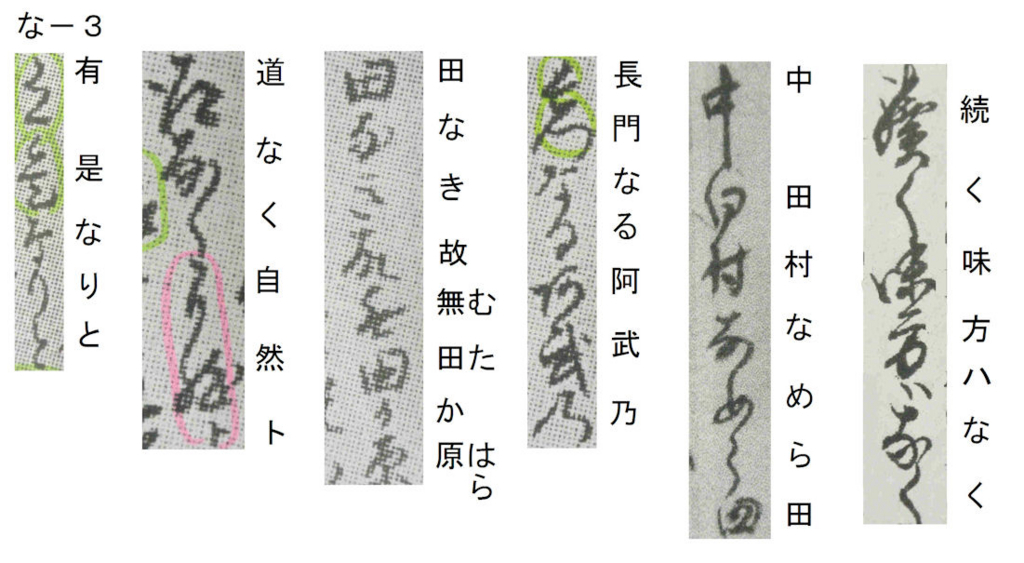 な－３
続く味方ハなく
中田村なめら田
長門なる阿武乃
田なき故無田か原
むた
はら
道なく自然ト
有是なりと